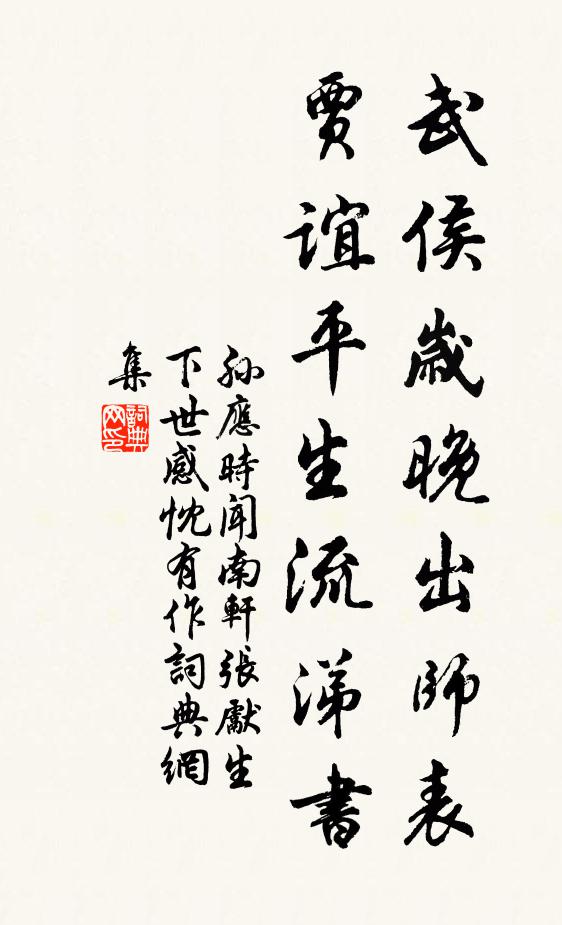 武侯歲晚出師表
賈誼平生流涕書
孫應時聞南軒張獻生
下世感忱有作詞典網
集
詞典網印